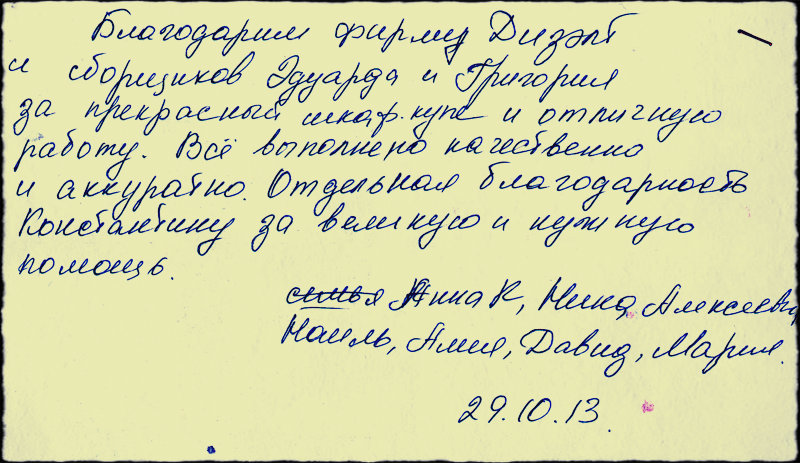 Благодарим фирму Дизэт
и сборщиков Эдуарда и Григория
за прекрасный шкаф-купе и отличную
работу. Всё выполнено качественно
и аккуратно. Отдельная благодарность
Константину за великую и нужную
помощь.
семья Анна К, Ника, Алексеевна
Наиль, Амия, Давид, Мария.
29.10.13.